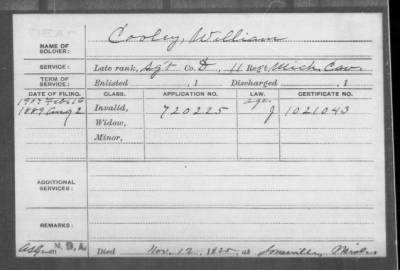 Cooley, William
NAME OF
SOLDIER:
SERVICE: Late rank, Sgt Co. D, 11 Reg't Mich. Cav.
TERM OF
SERVICE: Enlisted , 1 Discharged , 1
DATE OF FILING. CLASS. APPLICATION NO. LAW. CERTIFICATE NO.
1907 Feb 16 age
1889 Aug 2 Invalid, 720225 J 1021043
Widow,
Minor,
ADDITIONAL
SERVICES:
REMARKS:
N.D.A.
Died Nov. 12, 1925, at Mich